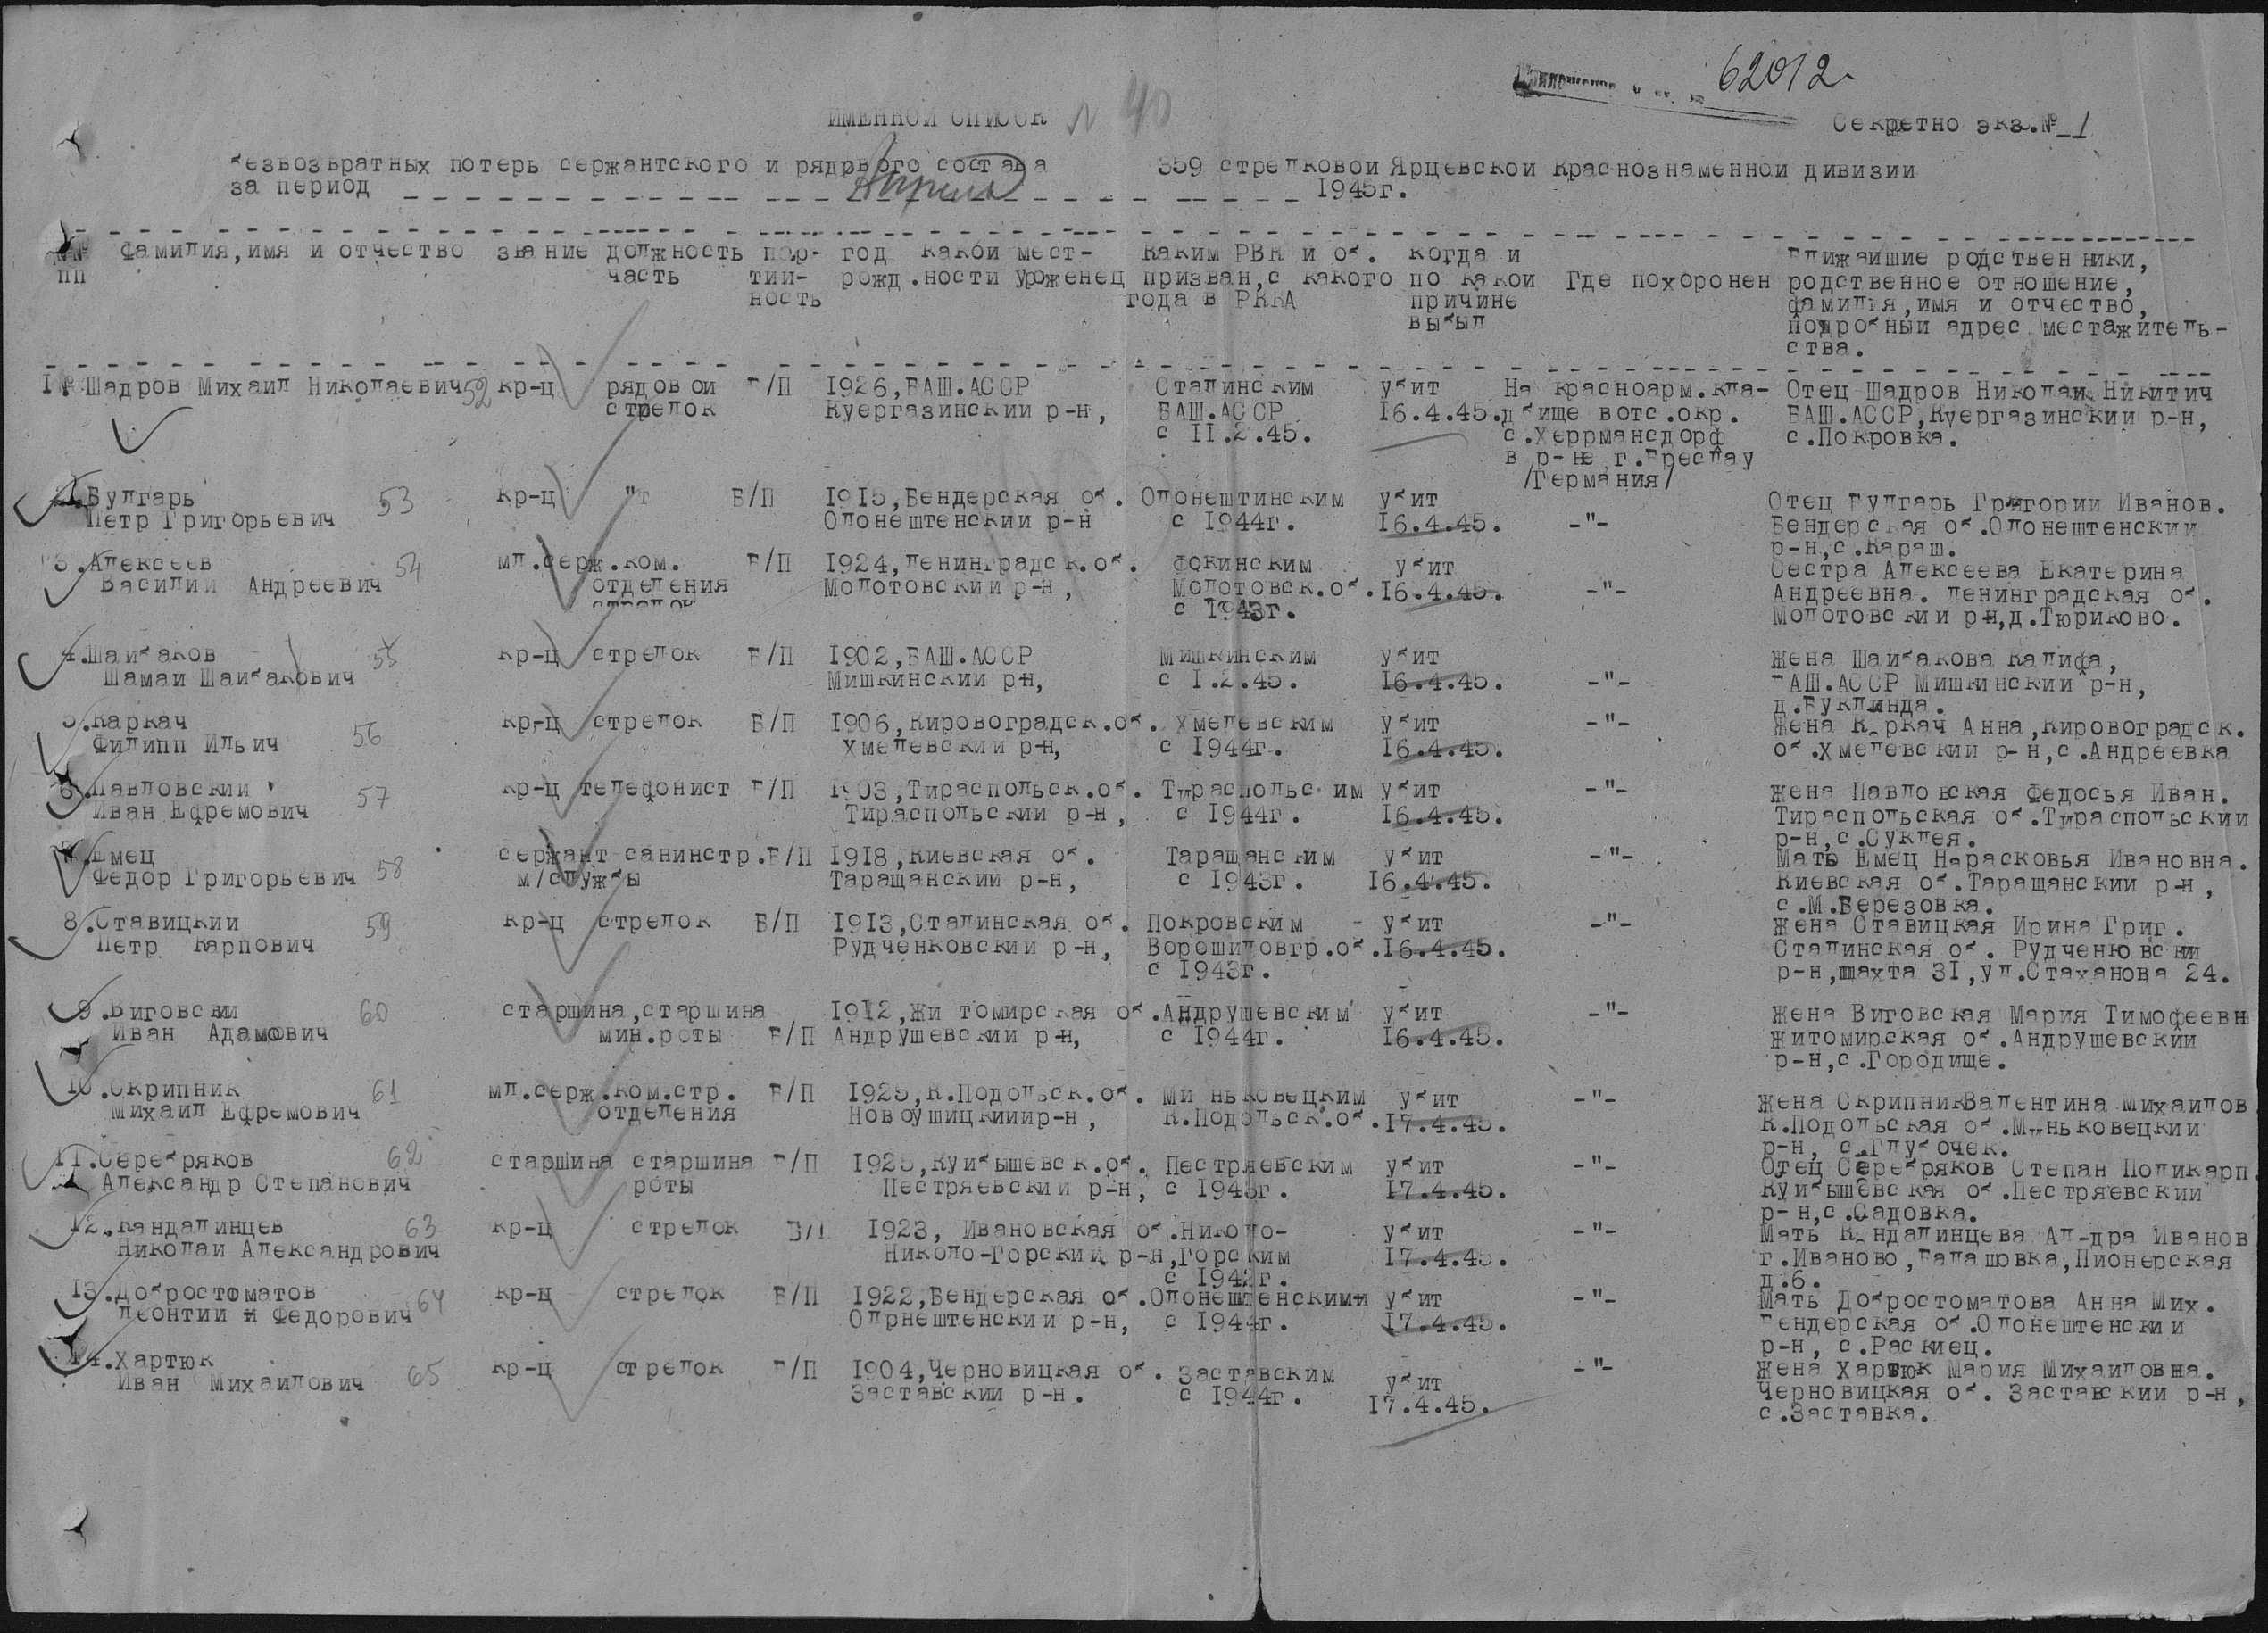 62012
ИМЕННОЙ СПИСОК № 40
Секретно экз.№ 1
безвозвратных потерь сержантского и рядрвого состава 359 стрелковой Ярцевской Краснознаменной дивизии
за период Апрель 1945г.
№№ Фамилия,имя и отчество звание должность пар- год какой мест- Каким РВК и об. когда и Ближайшие родственники,
пп часть тий- рожд.ности уроженец призван,с какого по какой Где похоронен родственное отношение,
ность года в РККА причине фамилия,имя и отчество,
выбыл подробный адрес местажитель-
ства.
1. Шадров Михаил Николаевич 52 кр-ц рядовой Б/П 1926,БАШ.АССР Сталинским убит На красноарм.кла- Отец Шадров Николай Никитич
стрелок Куергазинский р-н, БАШ.АССР 16.4.45. дбище вотс.окр. БАШ.АССР,Куергазинский р-н,
с 11.2.45. с.Херрмансдорф с.Покровка.
в р-не г.Бреслау
/Германия/
2.Булгарь 53 кр-ц "т Б/П 1915,Бендерская об. Олонештинским убит Отец Булгарь Григорий Иванов.
Петр Григорьевич Олонештенский р-н с 1944г. 16.4.45. -"- Бендерская об.Олонештенский
р-н,с.Караш.
3.Алексеев 54 мл.серж.ком. Б/П 1924,Ленинградск.об. Фокинским убит Сестра Алексеева Екатерина
Василий Андреевич отделения Молотовский р-н, Молотовск.об. 16.4.45. -"- Андреевна. Ленинградская об.
стрелок с 1943г. Молотовский р-н,д.Тюриково.
4.Шайбаков 55 кр-ц стрелок Б/П 1902,БАШ.АССР Мишкинским убит Жена Шайбакова Калифа,
Шамай Шайбакович Мишкинский р-н, с 1.2.45. 16.4.45. -"- БАШ.АССР Мишкинский р-н,
д.Буклинда.
5.Каркач 56 кр-ц стрелок Б/П 1906,Кировоградск.об. Хмелевским убит -"- Жена Каркач Анна,Кировоградск.
Филипп Ильич Хмелевский р-н, с 1944г. 16.4.45. об.Хмелевский р-н,с.Андреевка
6.Павловский 57 кр-ц телефонист Б/П 1903,Тираспольск.об. Тираспольс им убит -"- Жена Павловская Федосья Иван.
Иван Ефремович Тираспольский р-н, с 1944г. 16.4.45. Тираспольская об.Тираспольский
р-н,с.Суклея.
7.Емец 58 сержант санинстр. Б/П 1918,Киевская об. Таращанским убит -"- Мать Емец Нарасковья Ивановна.
Федор Григорьевич м/службы Таращанский р-н, с 1943г. 16.4.45. Киевская об.Таращанский р-н,
с.М.Березовка.
8.Ставицкий 59 кр-ц стрелок Б/П 1913,Сталинская об. Покровским убит -"- Жена Ставицкая Ирина Григ.
Петр Карпович Рудченковский р-н, Ворошиловгр.об. 16.4.45. Сталинская об. Рудченковский
с 1943г. р-н,шахта 31,ул.Стаханова 24.
9.Виговский 60 старшина,старшина 1912,Житомирская об. Андрушевским убит -"- Жена Виговская Мария Тимофеевн
Иван Адамович мин.роты Б/П Андрушевский р-н, с 1944г. 16.4.45. Житомирская об.Андрушевский
р-н,с.Городище.
10.Скрипник 61 мл.серж.ком.стр. Б/П 1925,К.Подольск.об. Миньковецким убит -"- Жена Скрипник Валентина Михайлов
Михаил Ефремович отделения Новоушицкииир-н, К.Подольск.об. 17.4.45. К.Подольская об.Миньковецкий
р-н, с.Глубочек.
11.Серебряков 62 старшина старшина Б/П 1925,Куйбышевск.об. Пестряевским убит -"- Отец Серебряков Степан Поликарп.
Александр Степанович роты Пестряевский р-н, с 1943г. 17.4.45. Куйбышевская об.Пестряевский
р-н,с.Садовка.
12.Кандалинцев 63 кр-ц стрелок Б/П 1923, Ивановская об. Николо- убит -"- Мать Кандалинцева Ал-дра Иванов
Николай Александрович Николо-Горский р-н, Горским 17.4.45. г.Иваново,Балашовка,Пионерская
с 1942г. д.6.
13.Добростоматов 64 кр-ц стрелок Б/П 1922,Бендерская об. Олонештенским убит -"- Мать Добростоматова Анна Мих.
Леонтий и Федорович Олрнештенский р-н, с 1944г. 17.4.45. Бендерская об.Олонештенский
р-н, с.Раскиец.
14.Хартюк 65 кр-ц стрелок Б/П 1904,Черновицкая об. Заставским убит -"- Жена Хартюк Мария Михайловна.
Иван Михайлович Заставский р-н. с 1944г. 17.4.45. Черновицкая об. Заставский р-н,
с.Заставка.